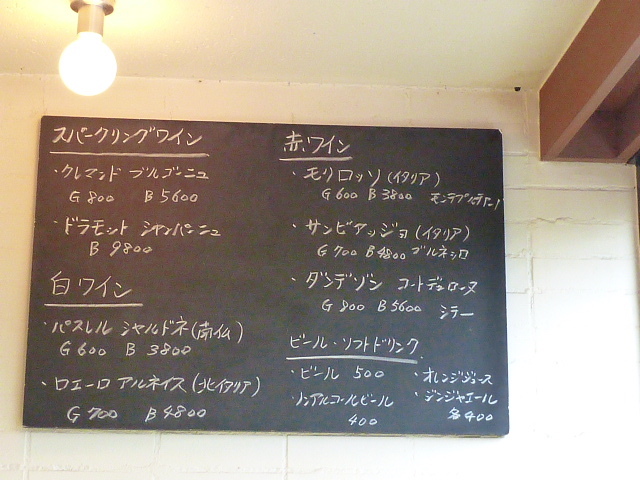 スパークリングワイン
・クレマンド ブルゴーニュ
G 800 B 5600
・ドラモット シャンパーニュ
B 9800
白ワイン
・パスレル シャルドネ(南仏)
G 600 B 3800
・ロエーロ アルネイス(北イタリア)
G 700 B 4800
赤ワイン
・モリロッソ(イタリア)
G 600 B 3800
・サンビアッジョ(イタリア)
G 700 B 4800
・ダンデゾン コートデュローヌ
G 800 B 5600 シラー
ビール・ソフトドリンク
・ビール 500
・ノンアルコールビール
400
・オレンジジュース
・ジンジャエール
各400